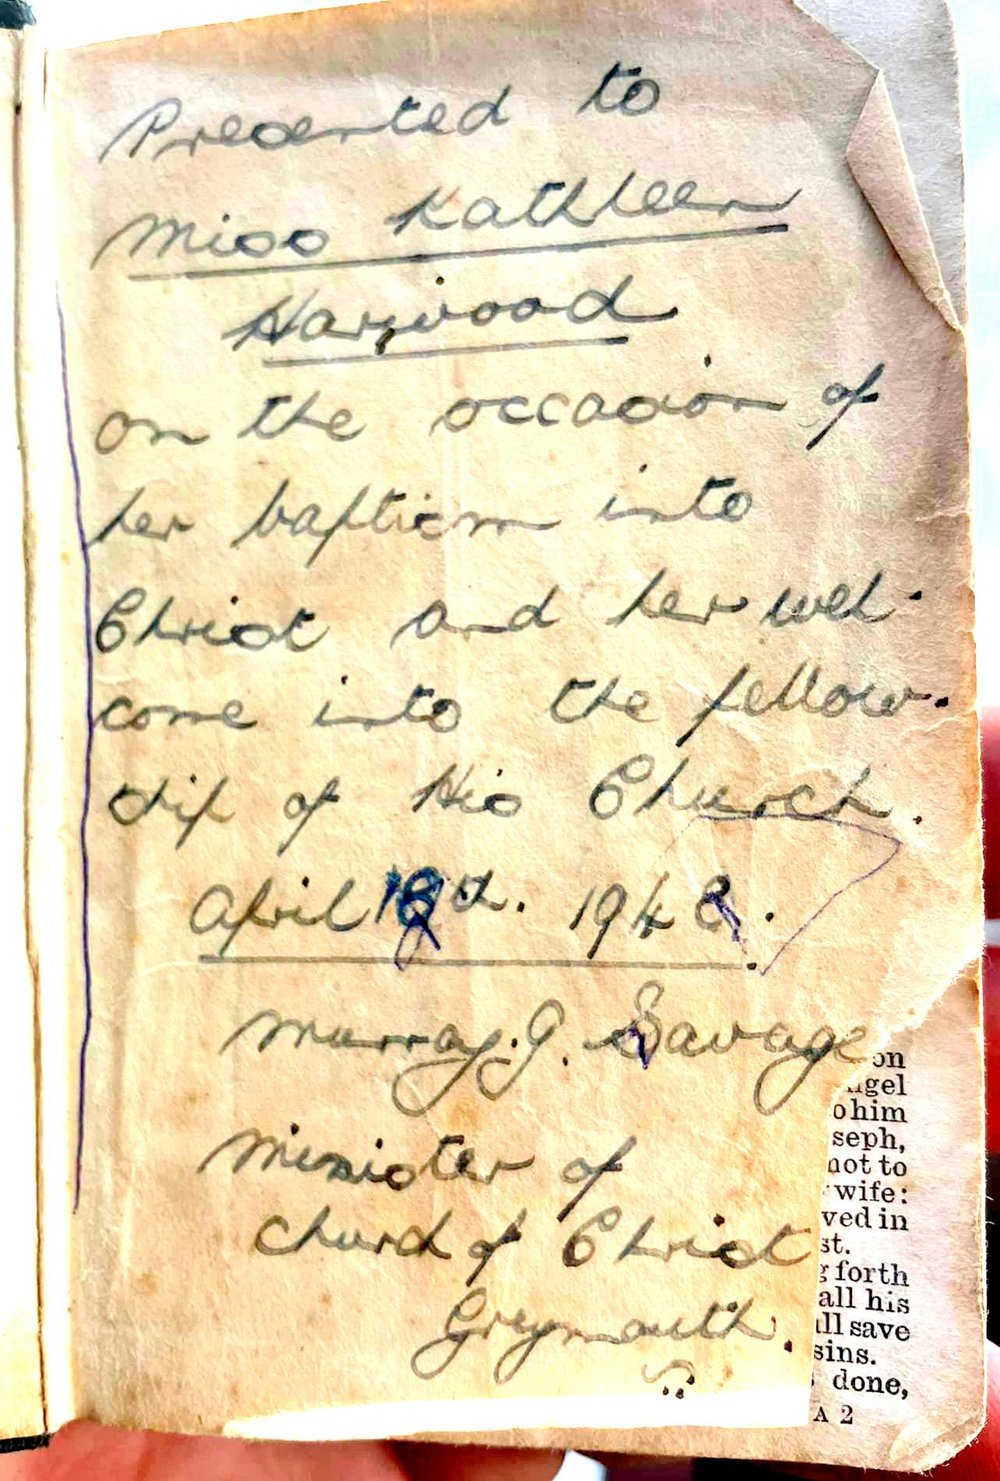 Presented to
Miss Kathleen
Harwood
on the occasion of
her baptism into
Christ and her wel-
come into the fellow-
ship of His Church.
April 18th. 1948.
Murray. G. Savage
Minister of
Church of Christ
Greymouth.
on
ngel
o him
seph,
not to
wife:
ved in
st.
g forth
all his
all save
sins.
done,
A 2